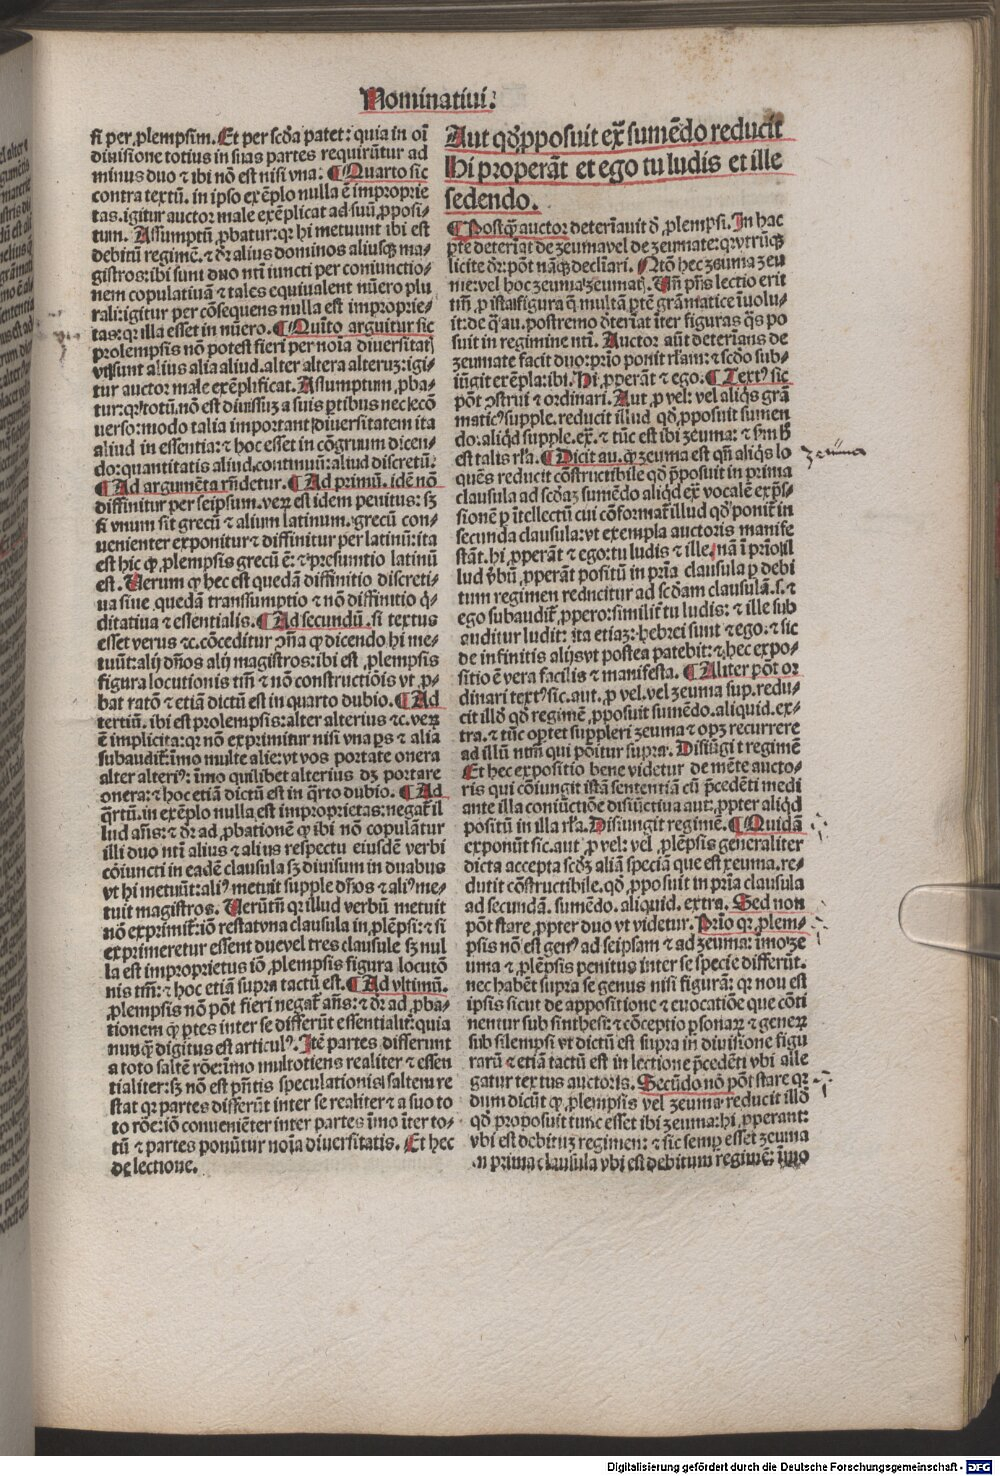 Nominatiui.
si per ꝓlempsim. Et per scd̄a patet: quia in oī
diuisione totius in suas partes requirūtur ad
minus duo ⁊ ibi nō est nisi vna. ¶ Quarto sic
contra textū. in ipso exēplo nulla ē improprie
tas. igitur auctor male exēplicat ad suū ꝓposi-
tum. Assumptū ꝓbatur: qꝛ hi metuunt ibi est
debitū regimē. ⁊ dꝛ alius dominos aliusqꝫ ma-
gistros: ibi sunt duo nt̄i iuncti per coniunctio-
nem copulatiuā ⁊ tales equiualent nūero plu
rali: igitur per cōsequens nulla est improprie-
tas: qꝛ illa esset in nūero. ¶ Quīto arguitur sic
prolempsis nō potest fieri per noīa diuersitatꝭ
vt sunt alius alia aliud. alter altera alteruꝫ: igi-
tur auctor male exēplificat. Assumptum ꝓba-
tur: qꝛ totū. nō est diuissuꝫ a suis ꝑtibus nec ecō
uerso: modo talia important diuersitatem ita
aliud in essentia: ⁊ hoc esset in cōgruum dicen-
do: quantitatis aliud. continuū: aliud discretū.
¶ Ad argumēta rn̄detur. ¶ Ad primū. idē nō
diffinitur per seipsum. veꝝ est idem penitus: sꝫ
si vnum sit grecū ⁊ alium latinum. grecū con-
uenienter exponitur ⁊ diffinitur per latinū: ita
est hic qꝙ ꝓlempsis grecū ē: ⁊ presumtio latinū
est. Uerum ꝙ hec est quedā diffinitio discreti-
ua siue quedam transsumptio ⁊ nō diffinitio q̇-
ditatiua ⁊ essentialis. ¶ Ad secundū. si textus
esset verus ⁊c. cōceditur ꝯn̄a ꝙ dicendo hi me-
tuūt: alij dn̄os alij magistros: ibi est ꝓlempsis
figura locutionis tm̄ ⁊ nō constructiōis vt ꝓ-
bat ratō ⁊ etiā dictū est in quarto dubio. ¶ Ad
tertiū. ibi est prolempsis: alter alterius ⁊c. veꝝ
ē implicita: qꝛ nō exprimitur nisi vna ꝑs ⁊ alia
subaudit̄: īmo multe alie: vt vos portate onera
alter alteriꝰ: īmo quilibet alterius dꝫ portare
onera: ⁊ hoc etiā dictū est in q̄rto dubio. ¶ Ad
q̄rtū. in exēplo nulla est improprietas: negat̄ il
lud an̄s: ⁊ dꝛ ad ꝓbationē ꝙ ibi nō copulātur
illi duo nt̄i alius ⁊ alius respectu eiusdē verbi
cōiuncti in eadē clausula sꝫ diuisum in duabus
vt hi metuūt: aliꝰ metuit supple dn̄os ⁊ aliꝰ me-
tuit magistros. Uerūtn̄ qꝛ illud verbū metuit
nō exprimit̄: iō restat vna clausula in ꝓlēpsi: ⁊ si
exprimeretur essent due vel tres clausule sꝫ nul
la est improprietus iō ꝓlempsis figura locutō
nis tm̄: ⁊ hoc etiā supra tactū est. ¶ Ad vltimū.
ꝓlempsis nō pōt fieri negat̄ an̄s: ⁊ dꝛ ad ꝓba-
tionem ꝙ ꝑtes inter se differūt essentialit̄: quia
nunqꝫ digitus est articulꝰ. Itē partes differunt
a toto saltē rōe: īmo multotiens realiter ⁊ essen
tialiter: sꝫ nō est pn̄tis speculationis saltem re
stat qꝛ partes differūt inter se realiter ⁊ a suo to
to rōe: iō conuenienter inter partes īmo īter to-
tū ⁊ partes ponūtur noīa diuersitatis. Et hec
de lectione.
Aut qd̄ ꝓposuit ex̄ sumēdo reducit
Hi properāt et ego tu ludis et ille
sedendo.
¶ Postqꝫ auctor deteriauit d̄ ꝓlempsi. In hac
ꝑte deteriat de zeuma vel de zeumate: qꝛ vtrūqꝫ
licite dꝛ: pōt nāqꝫ declīari. Ntō hec zeuma zeu
me: vel hoc zeuma zeumatꝭ. Un̄ pn̄s lectio erit
tm̄ ꝓ ista figura q̄ multā ꝑtē grāmatice īuolu-
it: de q̄ au. postremo d̄teriat īter figuras q̄s po
suit in regimine nt̄i. Auctor aūt deterīans de
zeumate facit duo: prīo ponit rl̄am: ⁊ scd̄o sub-
iūgit exēpla: ibi. Hi ꝓperāt ⁊ ego. ¶ Textꝰ sic
pōt ꝯstrui ⁊ ordinari. Aut. ꝓ vel: vel aliq̄s grā
maticꝰ supple. reducit illud qd̄ ꝓposuit sumen
do. aliq̇d supple. ex̄. ⁊ tūc est ibi zeuma: ⁊ sm̄ B
est talis rl̄a. ¶ Dicit au. ꝙ zeuma est qn̄ aliq̄s lo
quēs reducit cōstructibile qd̄ ꝓposuit in prima
clausula ad scd̄aꝫ sumēdo aliq̇d ex̄ vocalē exp̄s-
sionē ꝑ ītellectū cui cōformat̄ illud qd̄ ponit̄ in
secunda clausula: vt exempla auctoris manife
stāt. hi ꝓperāt ⁊ ego: tu ludis ⁊ ille. nā ī prīo il
lud v̄bū ꝓperāt positū in prīa clausula ꝑ debi
tum regimen reducitur ad scd̄am clausulā. s. ⁊
ego subaudit̄ ꝓpero: similit̄ tu ludis: ⁊ ille sub
auditur ludit: ita etiaꝫ: hebrei sunt ⁊ ego. ⁊ sic
de infinitis alijs vt postea patebit: ⁊ hec expo-
sitio ē vera facilis ⁊ manifesta. ¶ Aliter pōt or
dinari textꝰ sic. aut. ꝓ vel. vel zeuma sup. redu-
cit illd̄ qd̄ regimē ꝓposuit sumēdo. aliquid. ex-
tra. ⁊ tūc oꝑtet suppleri zeuma ⁊ opꝫ recurrere
ad illū ntm̄ qui pōitur supra. Disiūgit regimē
Et hec expositio bene videtur de mēte aucto-
ris qui cōiungit istā sententiā cū p̄cedēti medi
ante illa coniūctiōe disiūctiua aut: ꝓpter aliq̇d
positū in illa rl̄a. Disiungit regimē. ¶ Quidā
exponūt sic. aut ꝓ vel: vel ꝓlēpsis generaliter
dicta accepta scd̄ꝫ aliā speciā que est zeuma. re-
ducit cōstructibile. qd̄ ꝓposuit in prīa clausula
ad secundā. sumēdo. aliquid. extra. Sed non
pōt stare ꝓpter duo vt videtur. Prīo qꝛ ꝓlem-
psis nō est genꝰ ad seipsam ⁊ ad zeuma: īmo ze
uma ⁊ ꝓlēpsis penitus inter se specie differūt.
nec habēt supra se genus nisi figurā: qꝛ nou est
ipsis sicut de appositione ⁊ euocatiōe que cōti
nentur sub sinthesi: ⁊ cōceptio ꝑsonaꝝ ⁊ geneꝝ
sub silempsi vt dictū est supra in diuisione figu
rarū ⁊ etiā tactū est in lectione p̄cedēti vbi alle
gatur textus auctoris. Secūdo nō pōt stare qꝛ
dum dicūt ꝙ ꝓlempsis vel zeuma reducit illd̄
qd̄ proposuit tunc esset ibi zeuma: hi ꝓperant:
vbi est debituꝫ regimen: ⁊ sic semꝑ esset zeuma
in prima clausula vbi est debitum regimē: īmo
zeuma
Digitalisierung gefördert durch die Deutsche Forschungsgemeinschaft - DFG